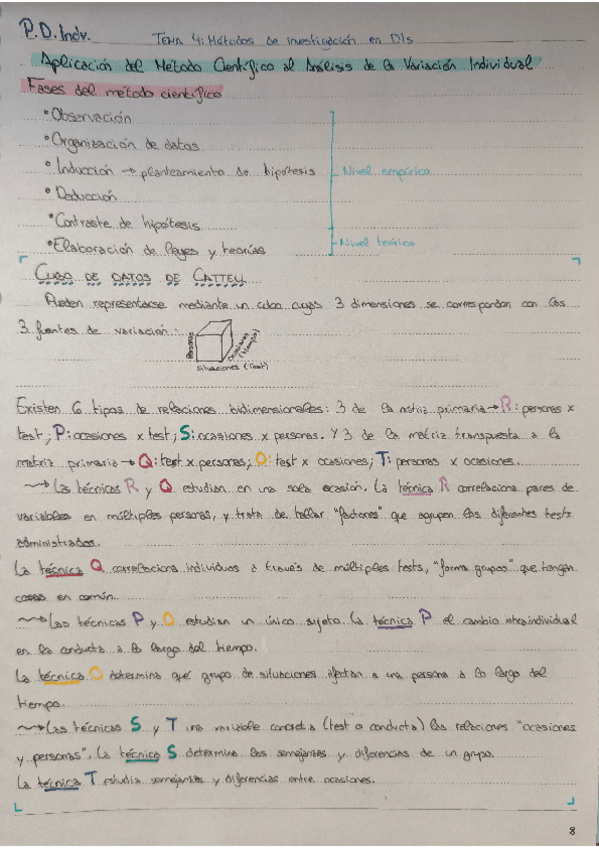 P.D. Indv.
Tema 4: Métodos de investigación en DIs
Aplicación del Método Científico al Análisis de la Variación Individual
Fases del método científico
• Observación
• Organización de datos
• Inducción → planteamiento de hipótesis
Nivel empírico
• Deducción
• Contraste de hipótesis
• Elaboración de leyes y teorías
Nivel teórico
CUBO DE DATOS DE CATTELL
Pueden representarse mediante un cubo cuyas 3 dimensiones se correspondan con las
3 fuentes de variación:
Personas
Ocasiones (tiempo)
Situaciones (test)
Existen 6 tipos de relaciones bidimensionales: 3 de la matriz primaria → R: personas x
test; P: ocasiones x test; S: ocasiones x personas. Y 3 de la matriz transpuesta a la
matriz primaria → Q: test x personas; O: test x ocasiones; T: personas x ocasiones.
Las técnicas R y Q estudian en una sola ocasión. La técnica R correlaciona pares de
variables en múltiples personas, y trata de hallar "factores" que agrupen los diferentes tests
administrados.
La técnica Q correlaciona individuos a través de múltiples tests, "forma grupos" que tengan
cosas en común.
Las técnicas P y O estudian un único sujeto. La técnica P el cambio intraindividual
en la conducta a lo largo del tiempo.
La técnica O determina qué grupo de situaciones afectan a una persona a lo largo del
tiempo.
Las técnicas S y T una variable concreta (test o conducta) las relaciones "ocasiones
y personas". La técnica S determina las semejanzas y diferencias de un grupo.
La técnica T estudia semejanzas y diferencias entre ocasiones.
8